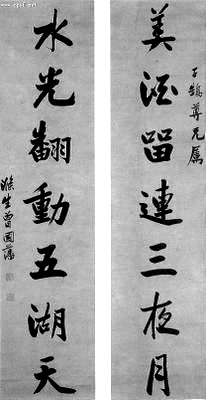 子鶴尊兄屬
美酒留連三夜月
水光翻動五湖天
滌生曾國藩